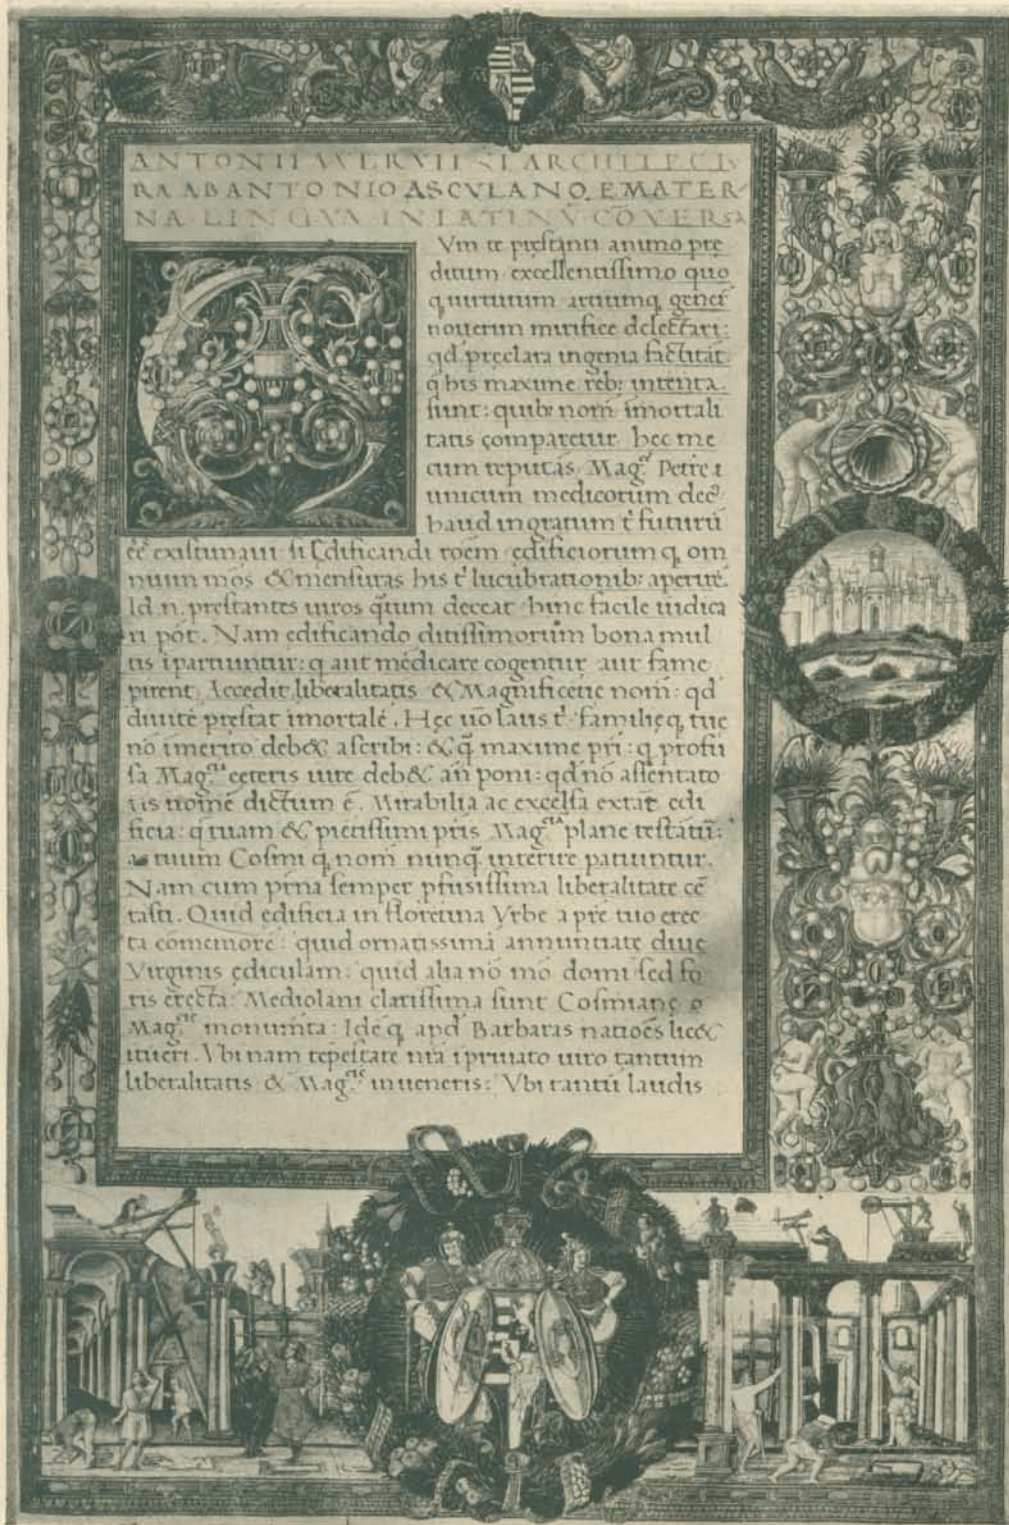 ANTONII AVERVLINI ARCHITECTV
RA AB ANTONIO ASCVLANO E MATER
NA LINGVA IN LATINV COVERSA
Vm te prestanti animo pre
ditum excellentissimo quo
q uirtutum artiumq generi
nouerim mirifice delectari:
qd preclara ingenia factitat
q his maxime reb: intenta
sunt: quib nom imortali
tatis comparetur. hec me
cum reputas Mag.ce Petre
unicum medicorum dec9
haud ingratum t futuru
eē existimaui si ędificandi roēm ędificiorum q om
nium mos & mensuras his t lucubrationib: aperire.
Id. n. prestantes uiros qum deceat hinc facile iudica
ri pōt. Nam edificando ditissimorum bona mul
tis ipartiuntur: q aut medicare cogentur aut fame
pirent. Accedit liberalitatis & Magnificetie nom: qd
diuite prestat imortale. Hęc uo laus t familięq tue
no imerito deb& ascribi: & q maxime pri: q profu
sa Mag.tia ceteris iure deb& an poni: qd no assentato
ris nomē dictum ē. Mirabilia ac excelsa extat edi
ficia: q tuam & pietissimi pris Mag.tia plane testatū:
tuum Cosmi q nom nunq interire patiuntur.
Nam cum prna semper pfusissima liberalitate cē
tasti. Quid edificia in florētina Vrbe a pre tuo erec
ta cōmemore: quid ornatissimā annuntiate diuę
Virginis ędiculam: quid alia nō mō domi sed fo
ris erecta: Mediolani clarissima sunt Cosmianę
Mag.tie monumta: Ide q apd Barbaras natioēs lic&
itueri. Vbi nam tēpestate nra i priuato uiro tantum
liberalitatis & Mag.tie inueneris: Vbi tantū laudis